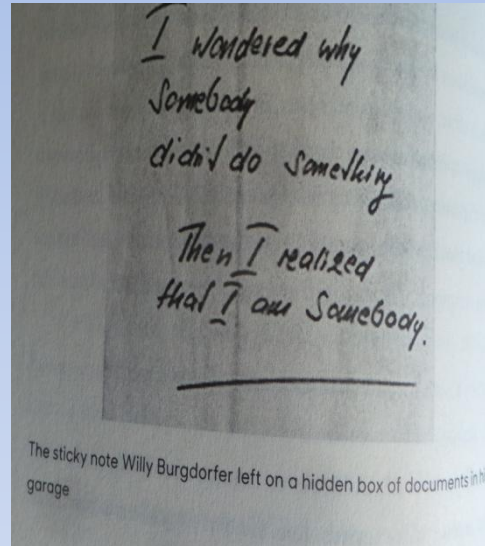 I wondered why
Somebody
didn't do Something
Then I realized
that I am Somebody.
The sticky note Willy Burgdorfer left on a hidden box of documents in
garage